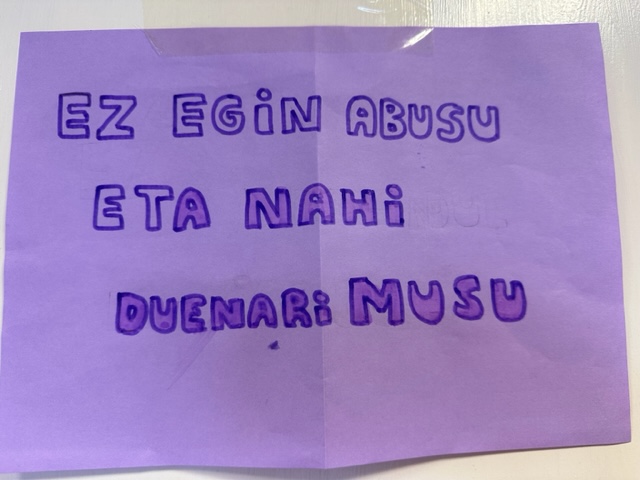 EZ EGiN ABUSU
ETA NAHi
DUENARi MUSU